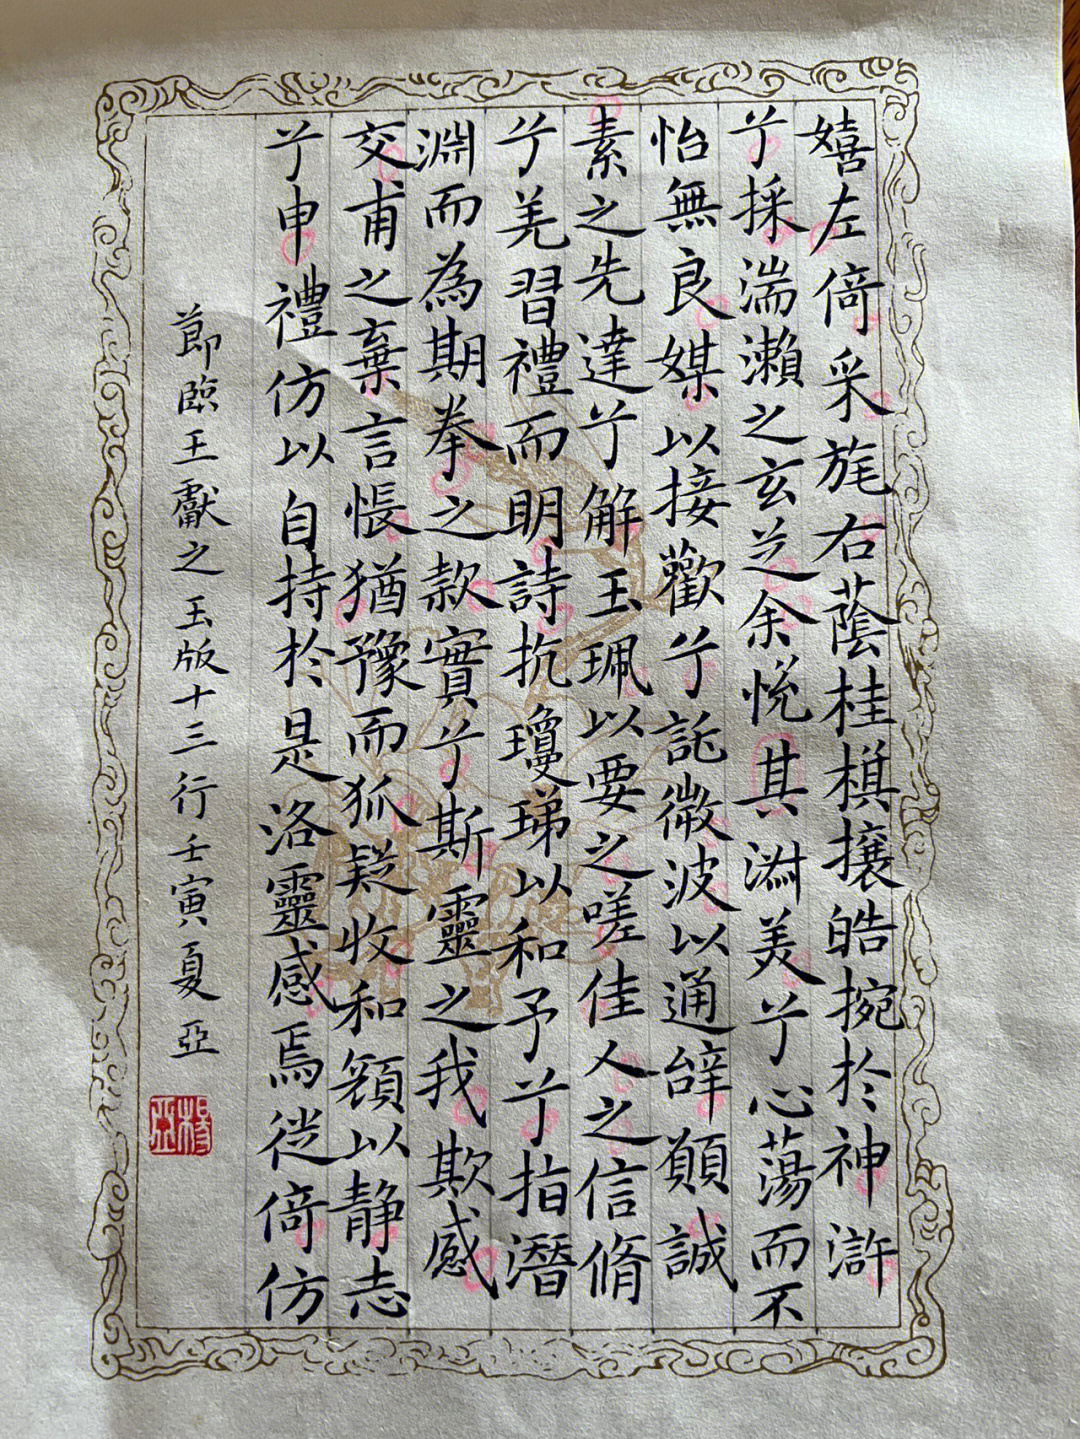 嬉左倚采旄右蔭桂棋攘皓捥於神滸
兮採湍瀨之玄芝余悅其淑美兮心蕩而不
怡無良媒以接歡兮託微波以通辝願誠
素之先達兮解玉珮以要之嗟佳人之信脩
兮羌習禮而明詩抗瓊珶以和予兮指潛
淵而為期拳之款實兮斯靈之我欺感
交甫之棄言悵猶豫而狐疑收和顏以静志
兮申禮仿以自持於是洛靈感焉徙倚仿
節臨王獻之玉版十三行壬寅夏亞
楊亞